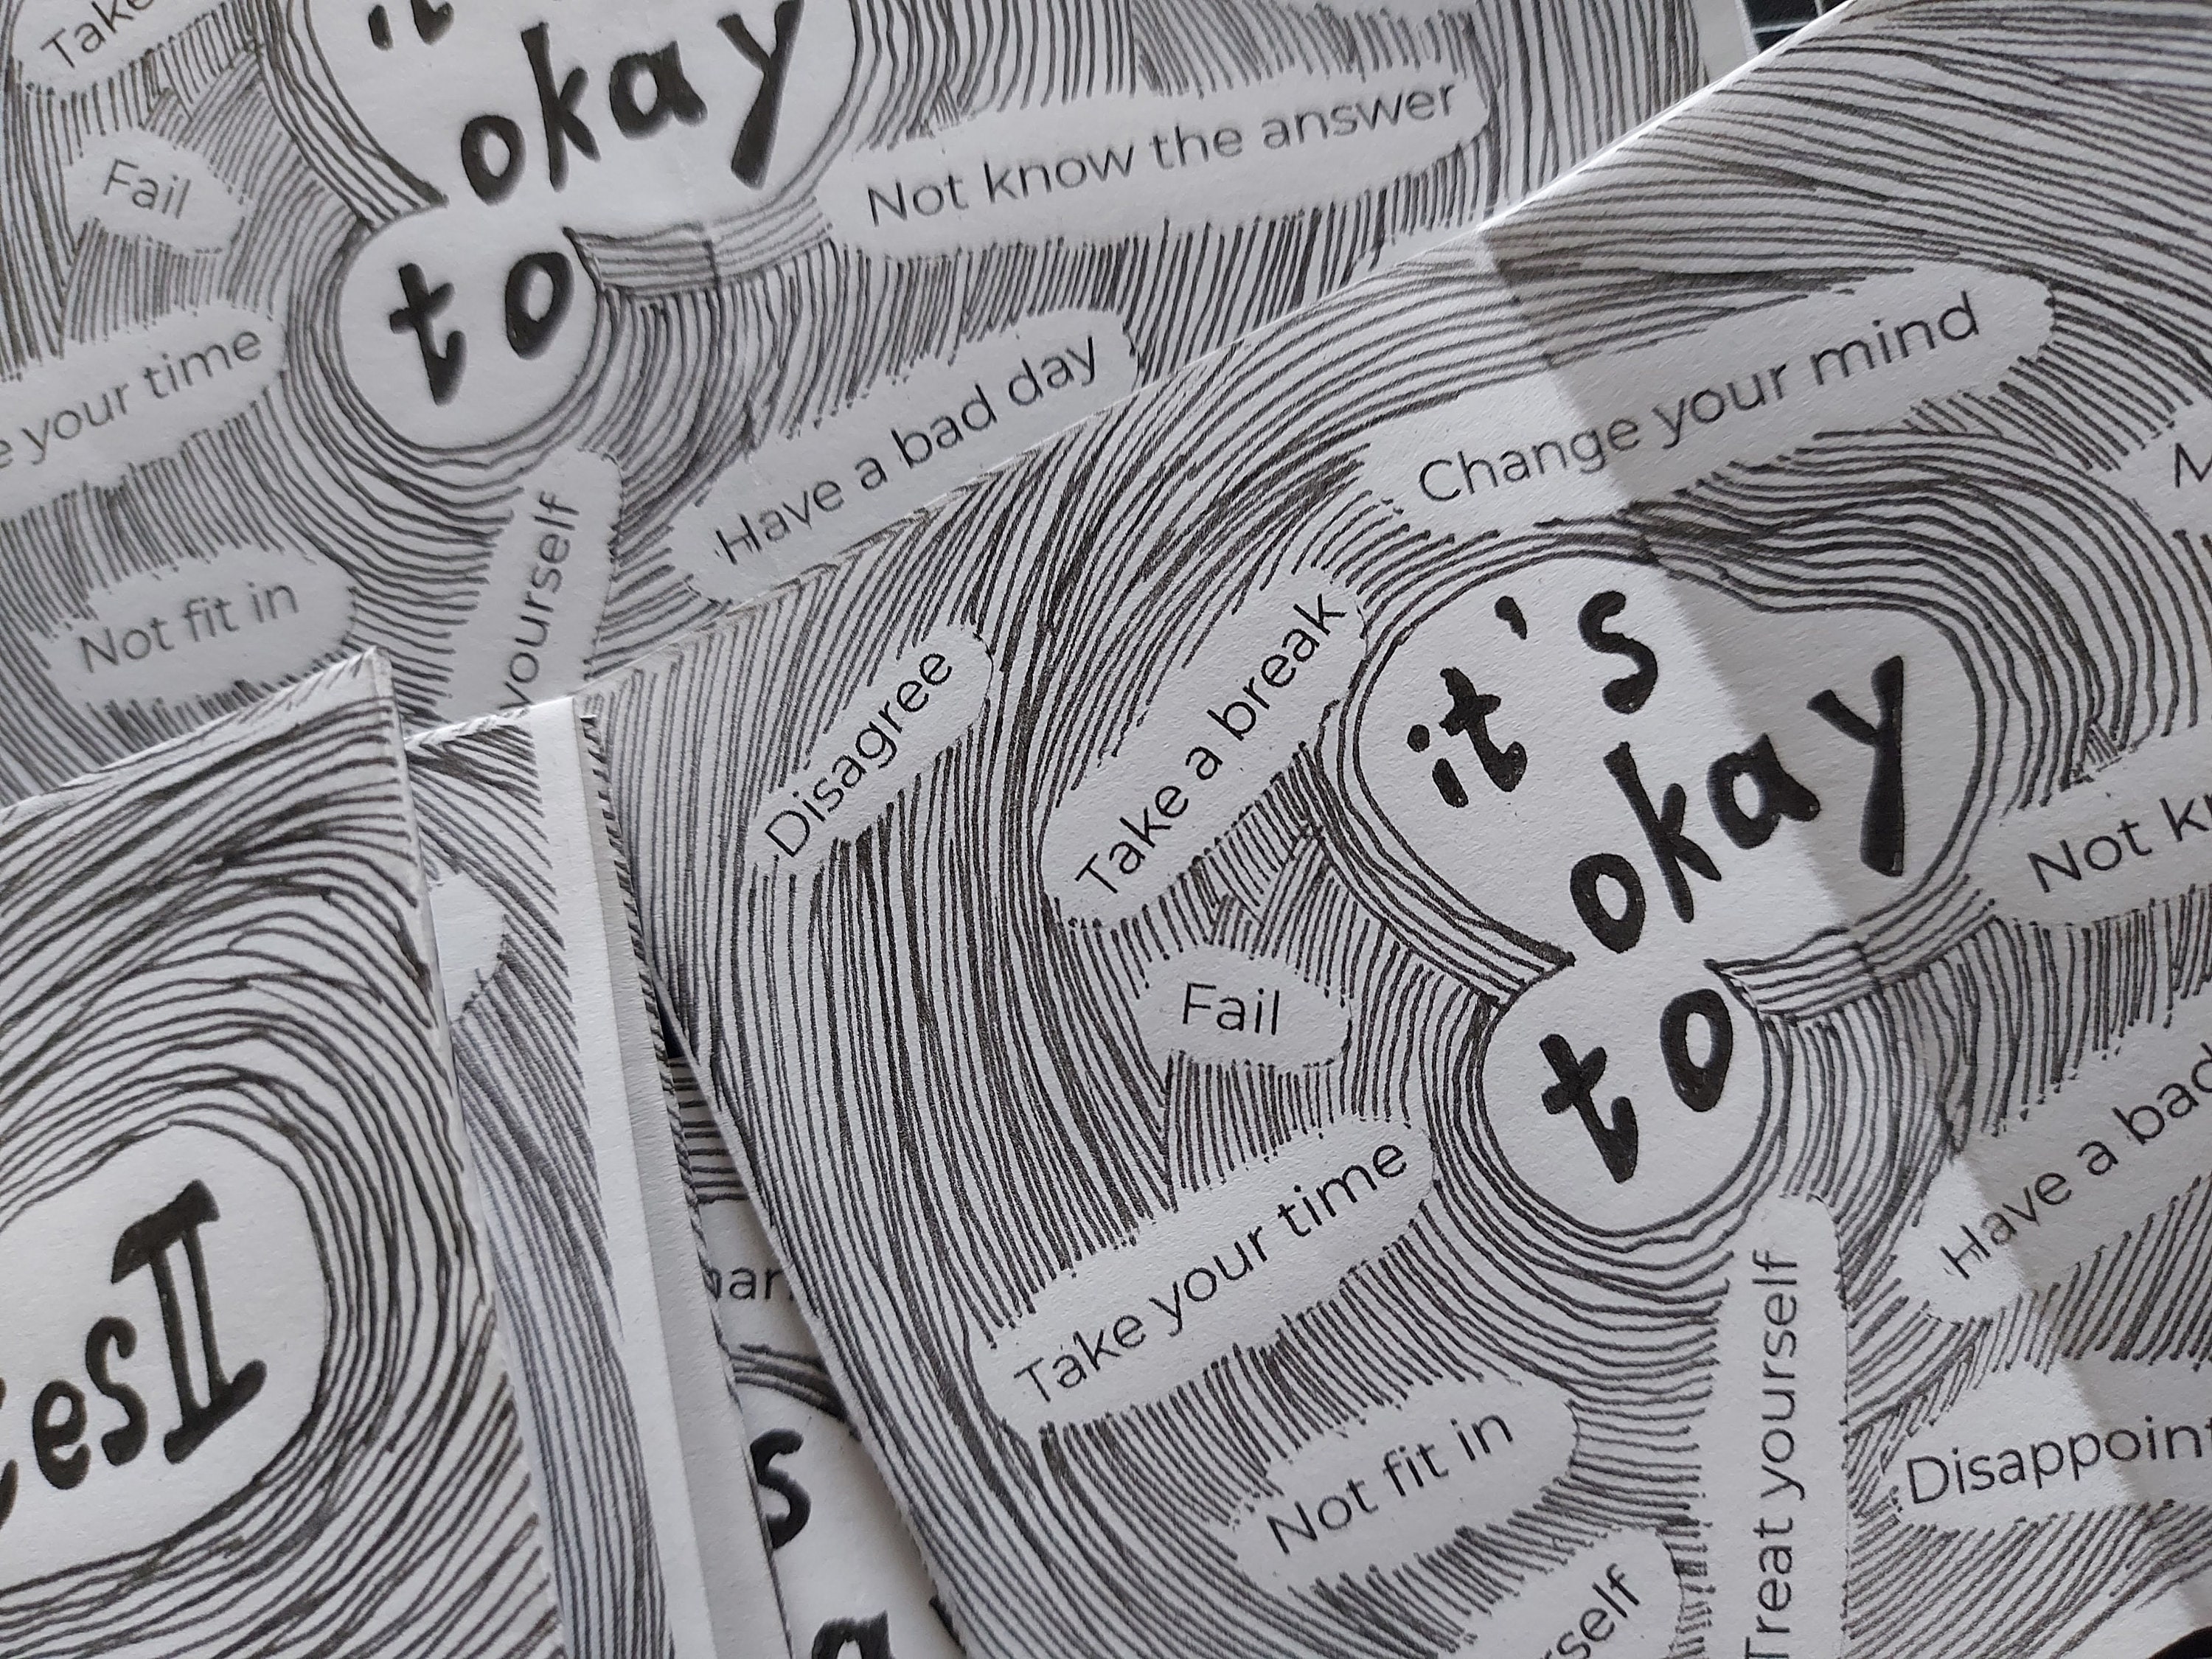 Take
okay
to
Fail
Not know the answer
your time
Have a bad day
yourself
Not fit in
Change your mind
Disagree
Take a break
it's
okay
to
Fail
Not
Take your time
Have a bad
Not fit in
Treat yourself